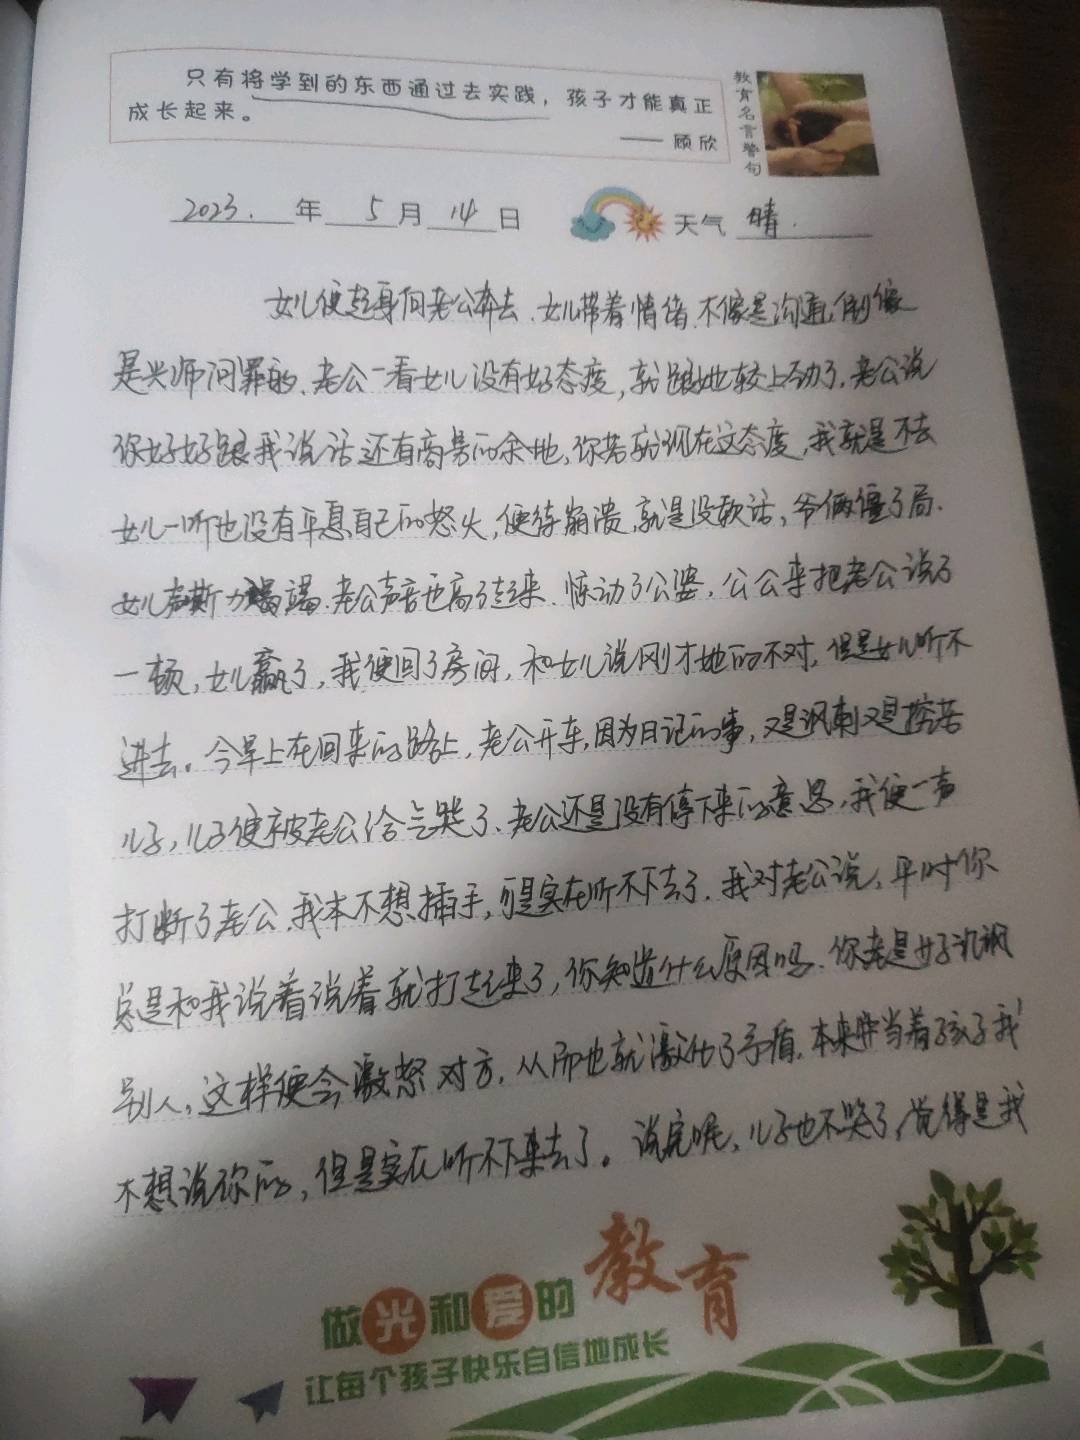 只有将学到的东西通过去实践，孩子才能真正
成长起来。
—— 顾欣
教育名言警句
2023. 年 5 月 14 日 天气 晴.
女儿便起身向老公奔去.女儿带着情绪.不像是沟通,倒像
是兴师问罪的.老公一看女儿没有好态度,就跟她较上劲了.老公说
你好好跟我说话还有商量的余地,你若就现在这态度,我就是不去
女儿一听也没有平息自己的怒火,便待崩溃.就是没软话,爷俩僵了局.
女儿声斯力竭.老公声音也高了起来.惊动了公婆,公公来把老公说了
一顿,女儿赢了,我便回了房间,和女儿说刚才她的不对,但是女儿听不
进去。今早上在回来的路上,老公开车,因为日记的事,又是讽刺又是挖苦
儿子,儿子便被老公给气哭了.老公还是没有停下来的意思,我便一声
打断了老公.我本不想插手,可是实在听不下去了.我对老公说,平时你
总是和我说着说着就打起来了,你知道什么原因吗.你老是好讥讽
别人,这样便会激怒对方.从而也就激化了矛盾.本来当着孩子我
不想说你的,但是实在听不下来去了。说完呢,儿子也不哭了,觉得是我
做光和爱的教育
让每个孩子快乐自信地成长